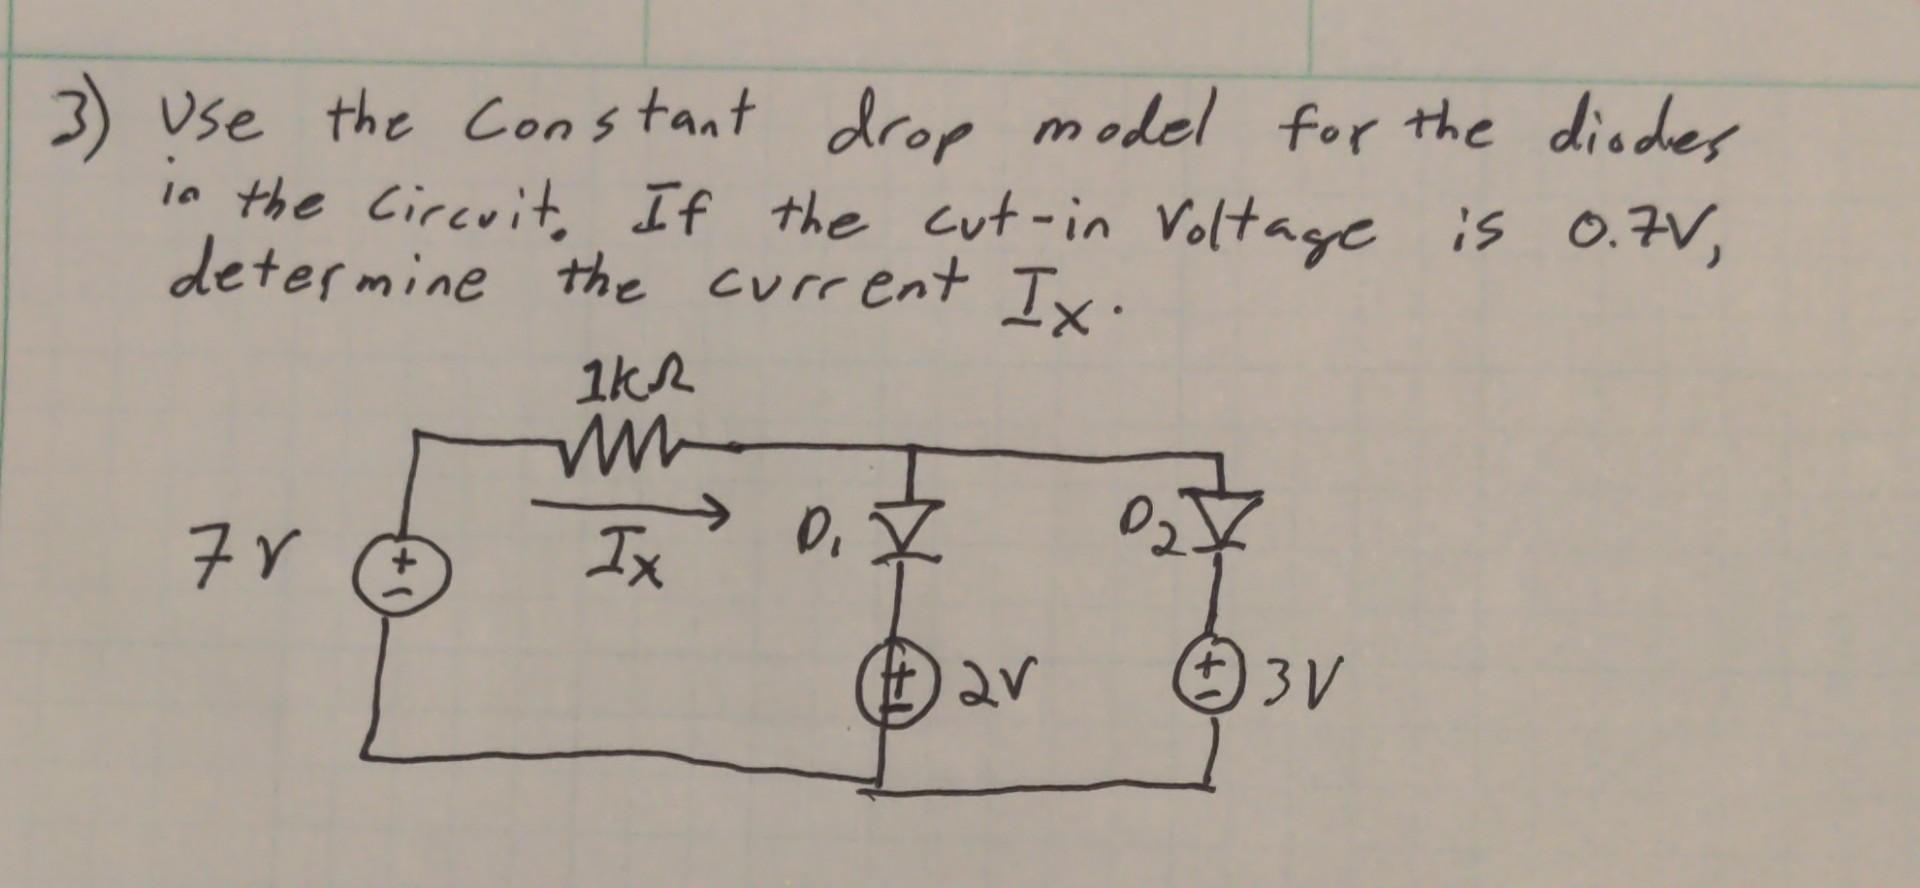 3) Use the Constant drop model for the diodes
in the circuit. If the cut-in Voltage is 0.7V,
determine the current Ix.
1kΩ
7V
+
-
Ix
D1
D2
+
-
2V
+
-
3V